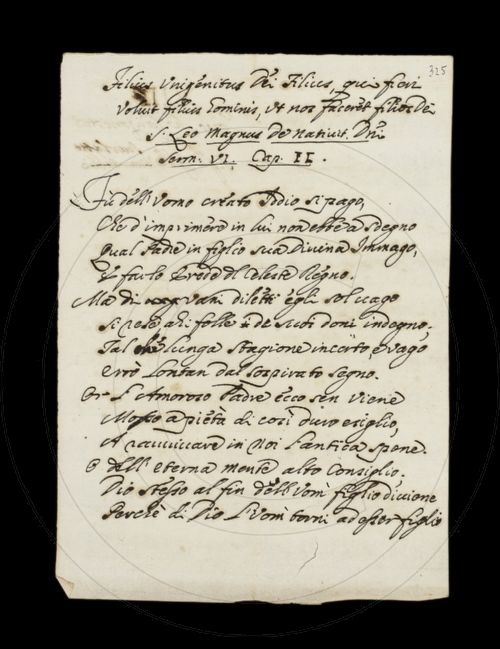 325
Filius Unigenitus Dei Filius, qui fieri
voluit filius hominis, ut nos faceret filios Dei
S. Leo Magnus de Nativit. Dni
Serm: VI. Cap. II.
Fu dell'Uomo creato Iddio sì pago,
Che d'imprimere in lui non ebbe a sdegno
Qual Padre in figlio sua Divina Immago,
E farlo Erede del Celeste Regno.
Ma di vani diletti egli sol vago
Si rese ahi folle de suoi doni indegno:
Tal lunga stagione incerto e vago
Errò lontan dal sospirato segno.
Or L'Amoroso Padre ecco sen viene
Mosso a pietà di così duro esiglio,
A ravvivare in Noi l'antica spene.
O dell'eterna mente alto Consiglio.
Dio stesso al fin dell'Uom figlio diviene
Perchè di Dio l'Uom torni ad esser figlio